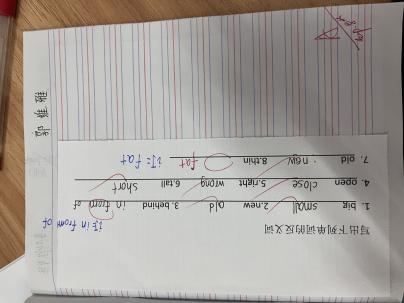 写出下列单词的反义词
1. big small 2.new old 3.behind in from of
订 in from of
4. open close 5.right wrong 6.tall short
7. old new 8.thin fat 订= fat
郭雅雅